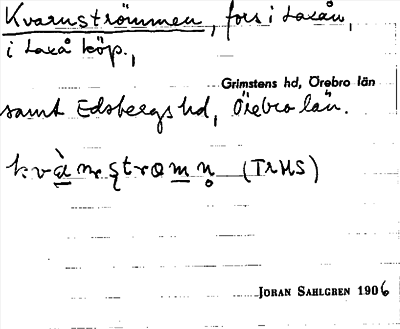 Kvarnströmmen, fors i Laxån,
i Laxå köp.,
Grimstens hd, Örebro län
samt Edsbergs hd, Örebro län.
(TrHS)
JÖRAN SAHLGREN 1906